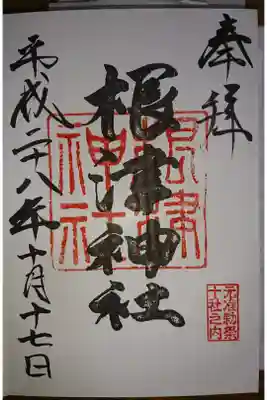 奉拝
根津神社
平成二十八年十月十七日
根津神社
元准勅祭
十社之内